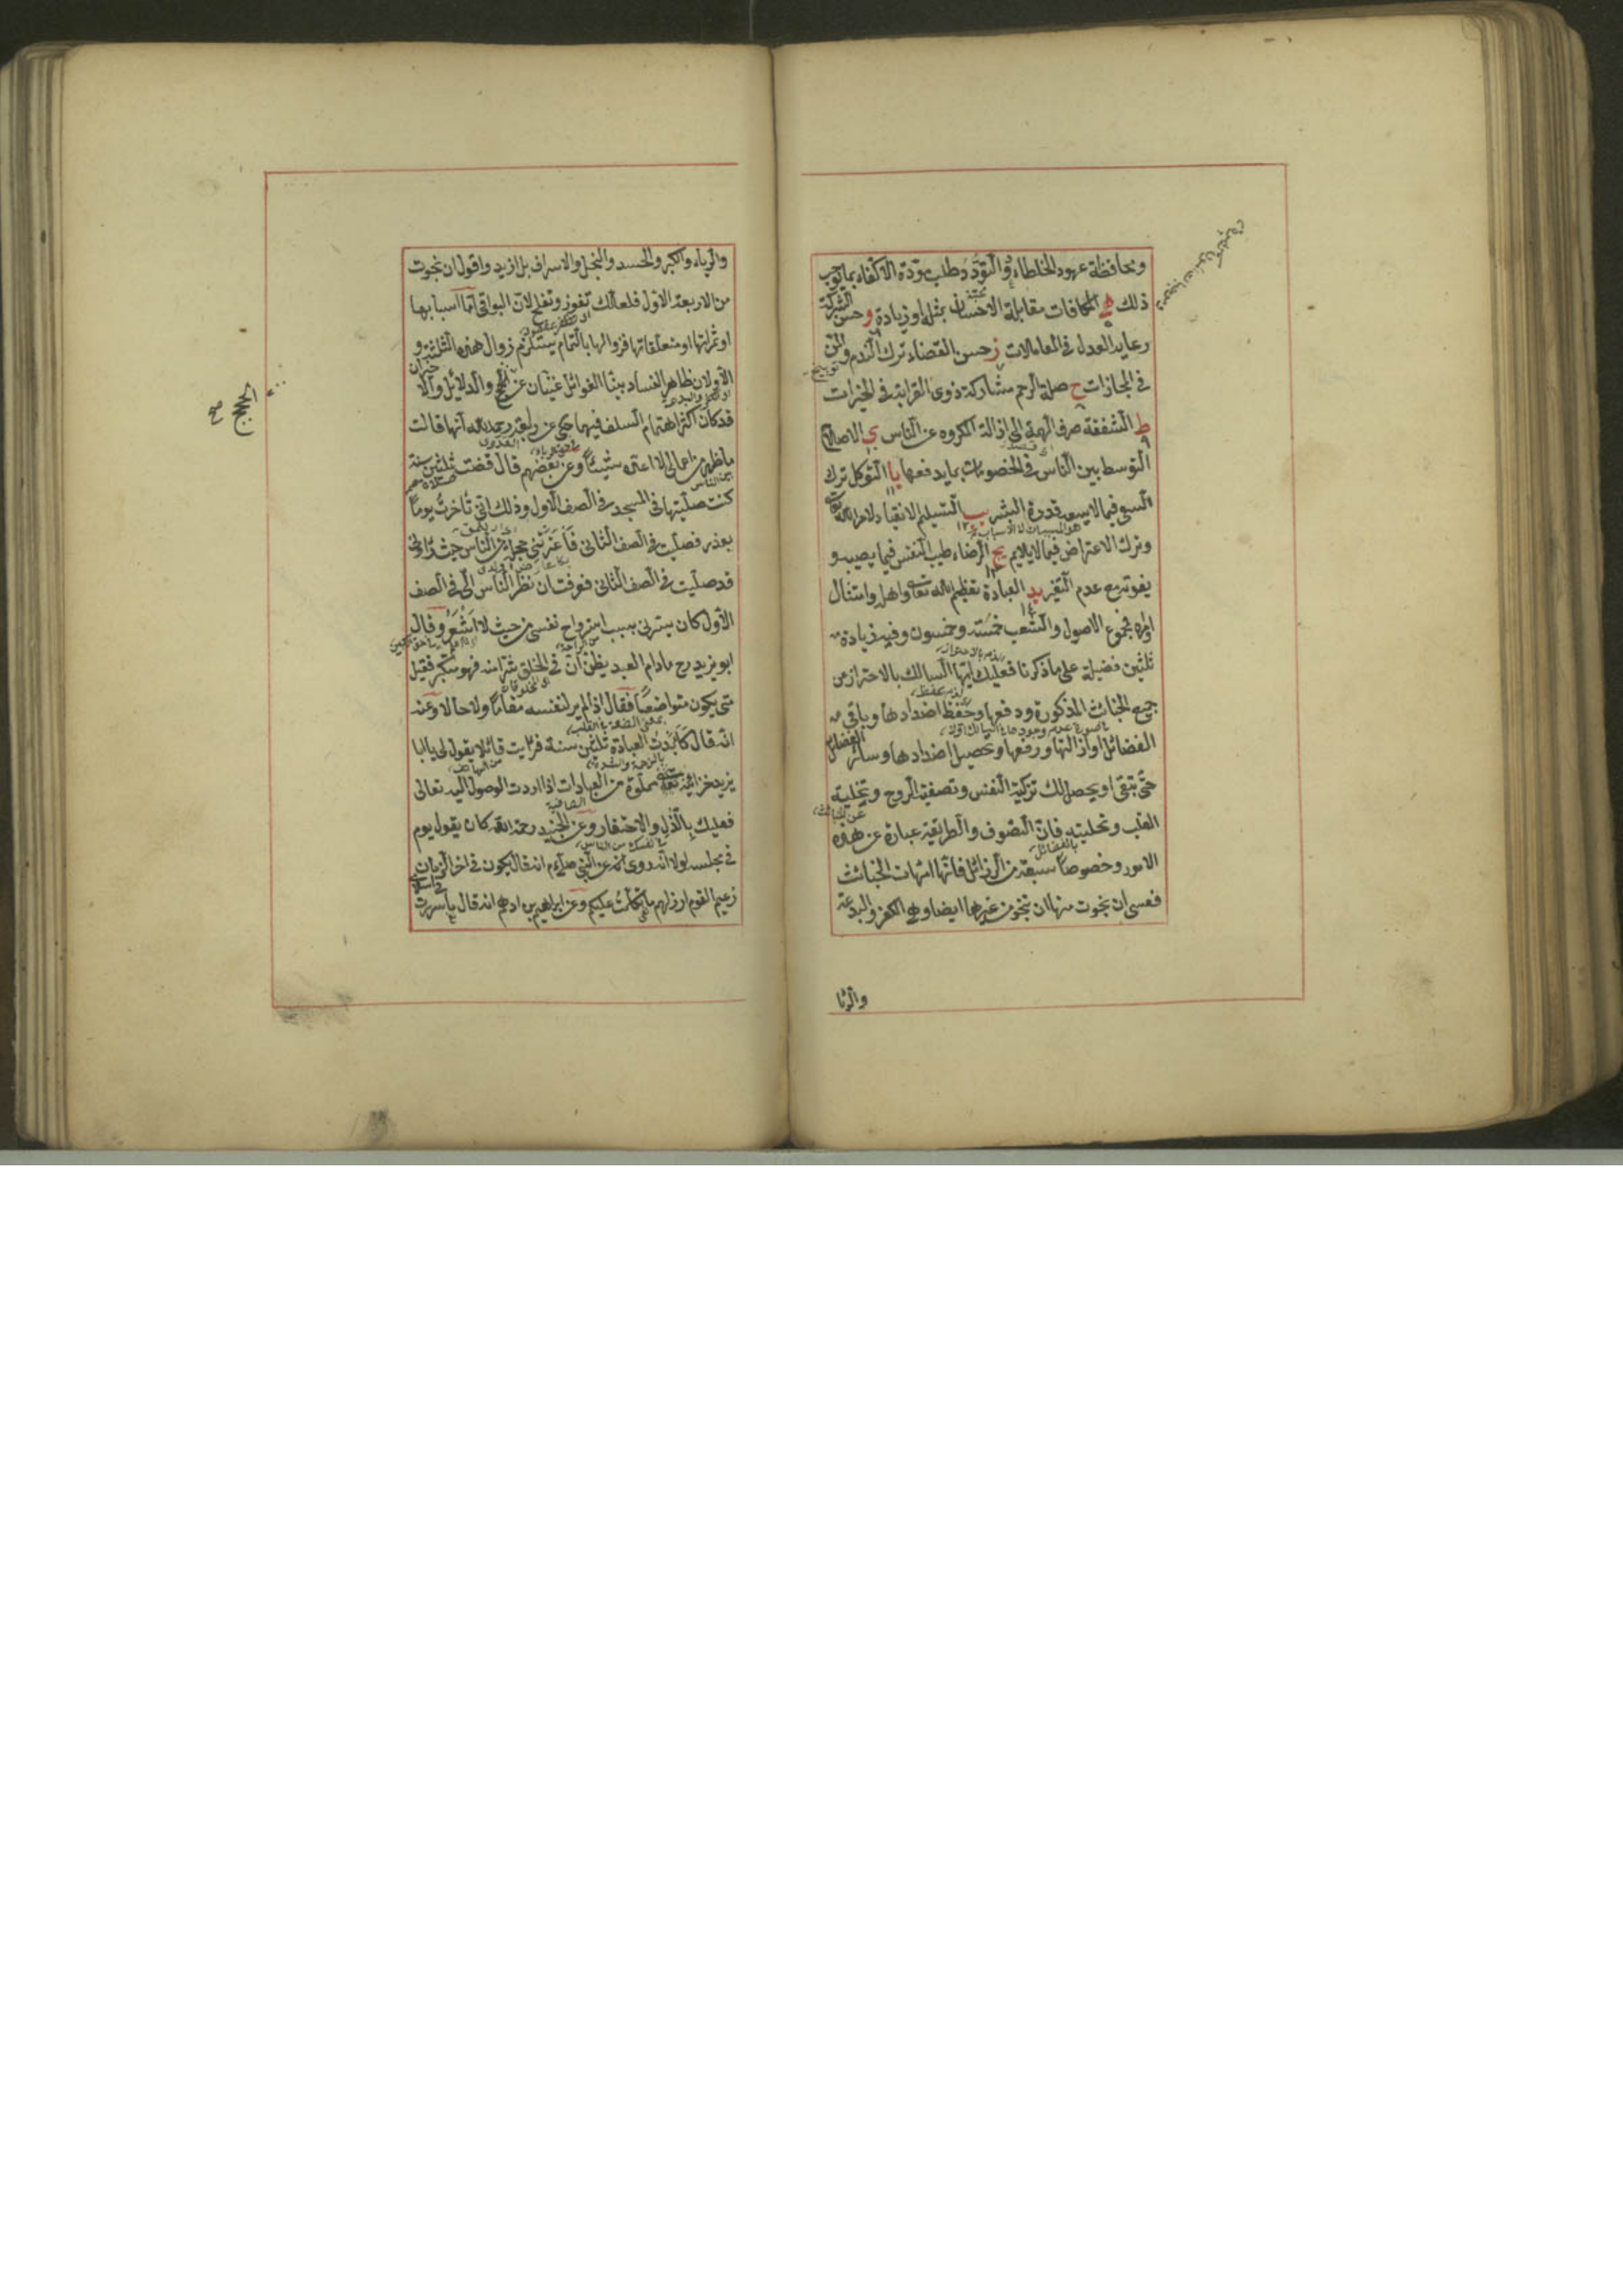 ومحافظة عهود الخلطاء د التودد وطلب مودة الاكفاء بما يوجب
ذلك ه المكافات مقابلة الاحسان بمثله او زيادة و حسن الشركة
رعاية العدل في المعاملات ز حسن القضاء ترك الندم والمن
في المجازات ح صلة الرحم مشاركة ذوى القرابة في الخيرات
ط الشفقة صرف الهمة الى ازالة المكروه عن الناس ى الاصلاح
التوسط بين الناس في الخصومات بما يدفعها يا التوكل ترك
السعى فيما لا يسعه قدرة البشر يب التسليم الانقياد لامر الله تعالى
وترك الاعتراض فيما لا يلايم يج الرضاء طيب النفس فيما يصيبه و
يفوته مع عدم التغير يد العبادة تعظيم الله تعالى واهله وامتثال
اوامره فمجموع الاصول والشعب خمسة وخمسون وفيه زيادة
ثلثين فضيلة على ما ذكرنا فعليك ايها السالك بالاحتراز من
جميع الخبائث المذكورة ودفعها وحفظ اضدادها وباقى
الفضائل او ازالتها ورفعها وتحصيل اضدادها وسائر الفضائل
حتى تبقى او يحصل لك تزكية النفس وتصفية الروح وتخلية
القلب وتحليته فان التصوف والطريقة عبارة عن هذه
الامور وخصوصا سبعة من الرذائل فانها امهات الخبائث
فعسى ان نجوت منها ان تنجو من غيرها ايضا وهى الكفر والبدعة
والريا
والرياء والكبر والحسد والبخل والاسراف بل ازيد واقول ان نجوت
من الاربعة الاول فلعلك تفوز وتفلح لان البواقى اما اسبابها
او ثمراتها او متعلقاتها فزوالها بالتمام يستلزم زوال هذه الثلثة و
الاولان ظاهر الفساد بينا الغوائل غنيان عن الحجج والدلائل والا
قد كان اكثر اهتمام السلف فيهما حكى عن رابعة رحمه الله انها قالت
ما ظهر من اعمالى لا اعده شيئا وعن بعضهم قال قضت ثلثين سنة
كنت صليتها في المسجد في الصف الاول وذلك انى تأخرت يوما
بعذر فصليت في الصف الثانى فاعترتنى خجلة من الناس حيث رأونى
قد صليت في الصف الثانى فعرفت ان نظر الناس الى في الصف
الاول كان يسرنى بسبب استرواح نفسى من حيث لا اشعر وقال
ابو يزيد رح مادام العبد يظن ان في الخلق شرا منه فهو متكبر فقيل
متى يكون متواضعا فقال اذا لم ير لنفسه مقاما ولا حالا وعنه
انه قال كابدت العبادة ثلثين سنة فرايت قائلا يقول لى يا ابا
يزيد خزائنه تعالى مملوة من العبادات اذا اردت الوصول اليه تعالى
فعليك بالذل والاحتقار وعن الجنيد رحمة الله كان يقول يوم
في مجلسه لولا انه روى عن النبى صلعم انه قال يكون في اخر الزمان
زعيم القوم ارذلهم ما تكلمت عليكم وعن ابراهيم بن ادهم انه قال ما سررت
الحجج صح